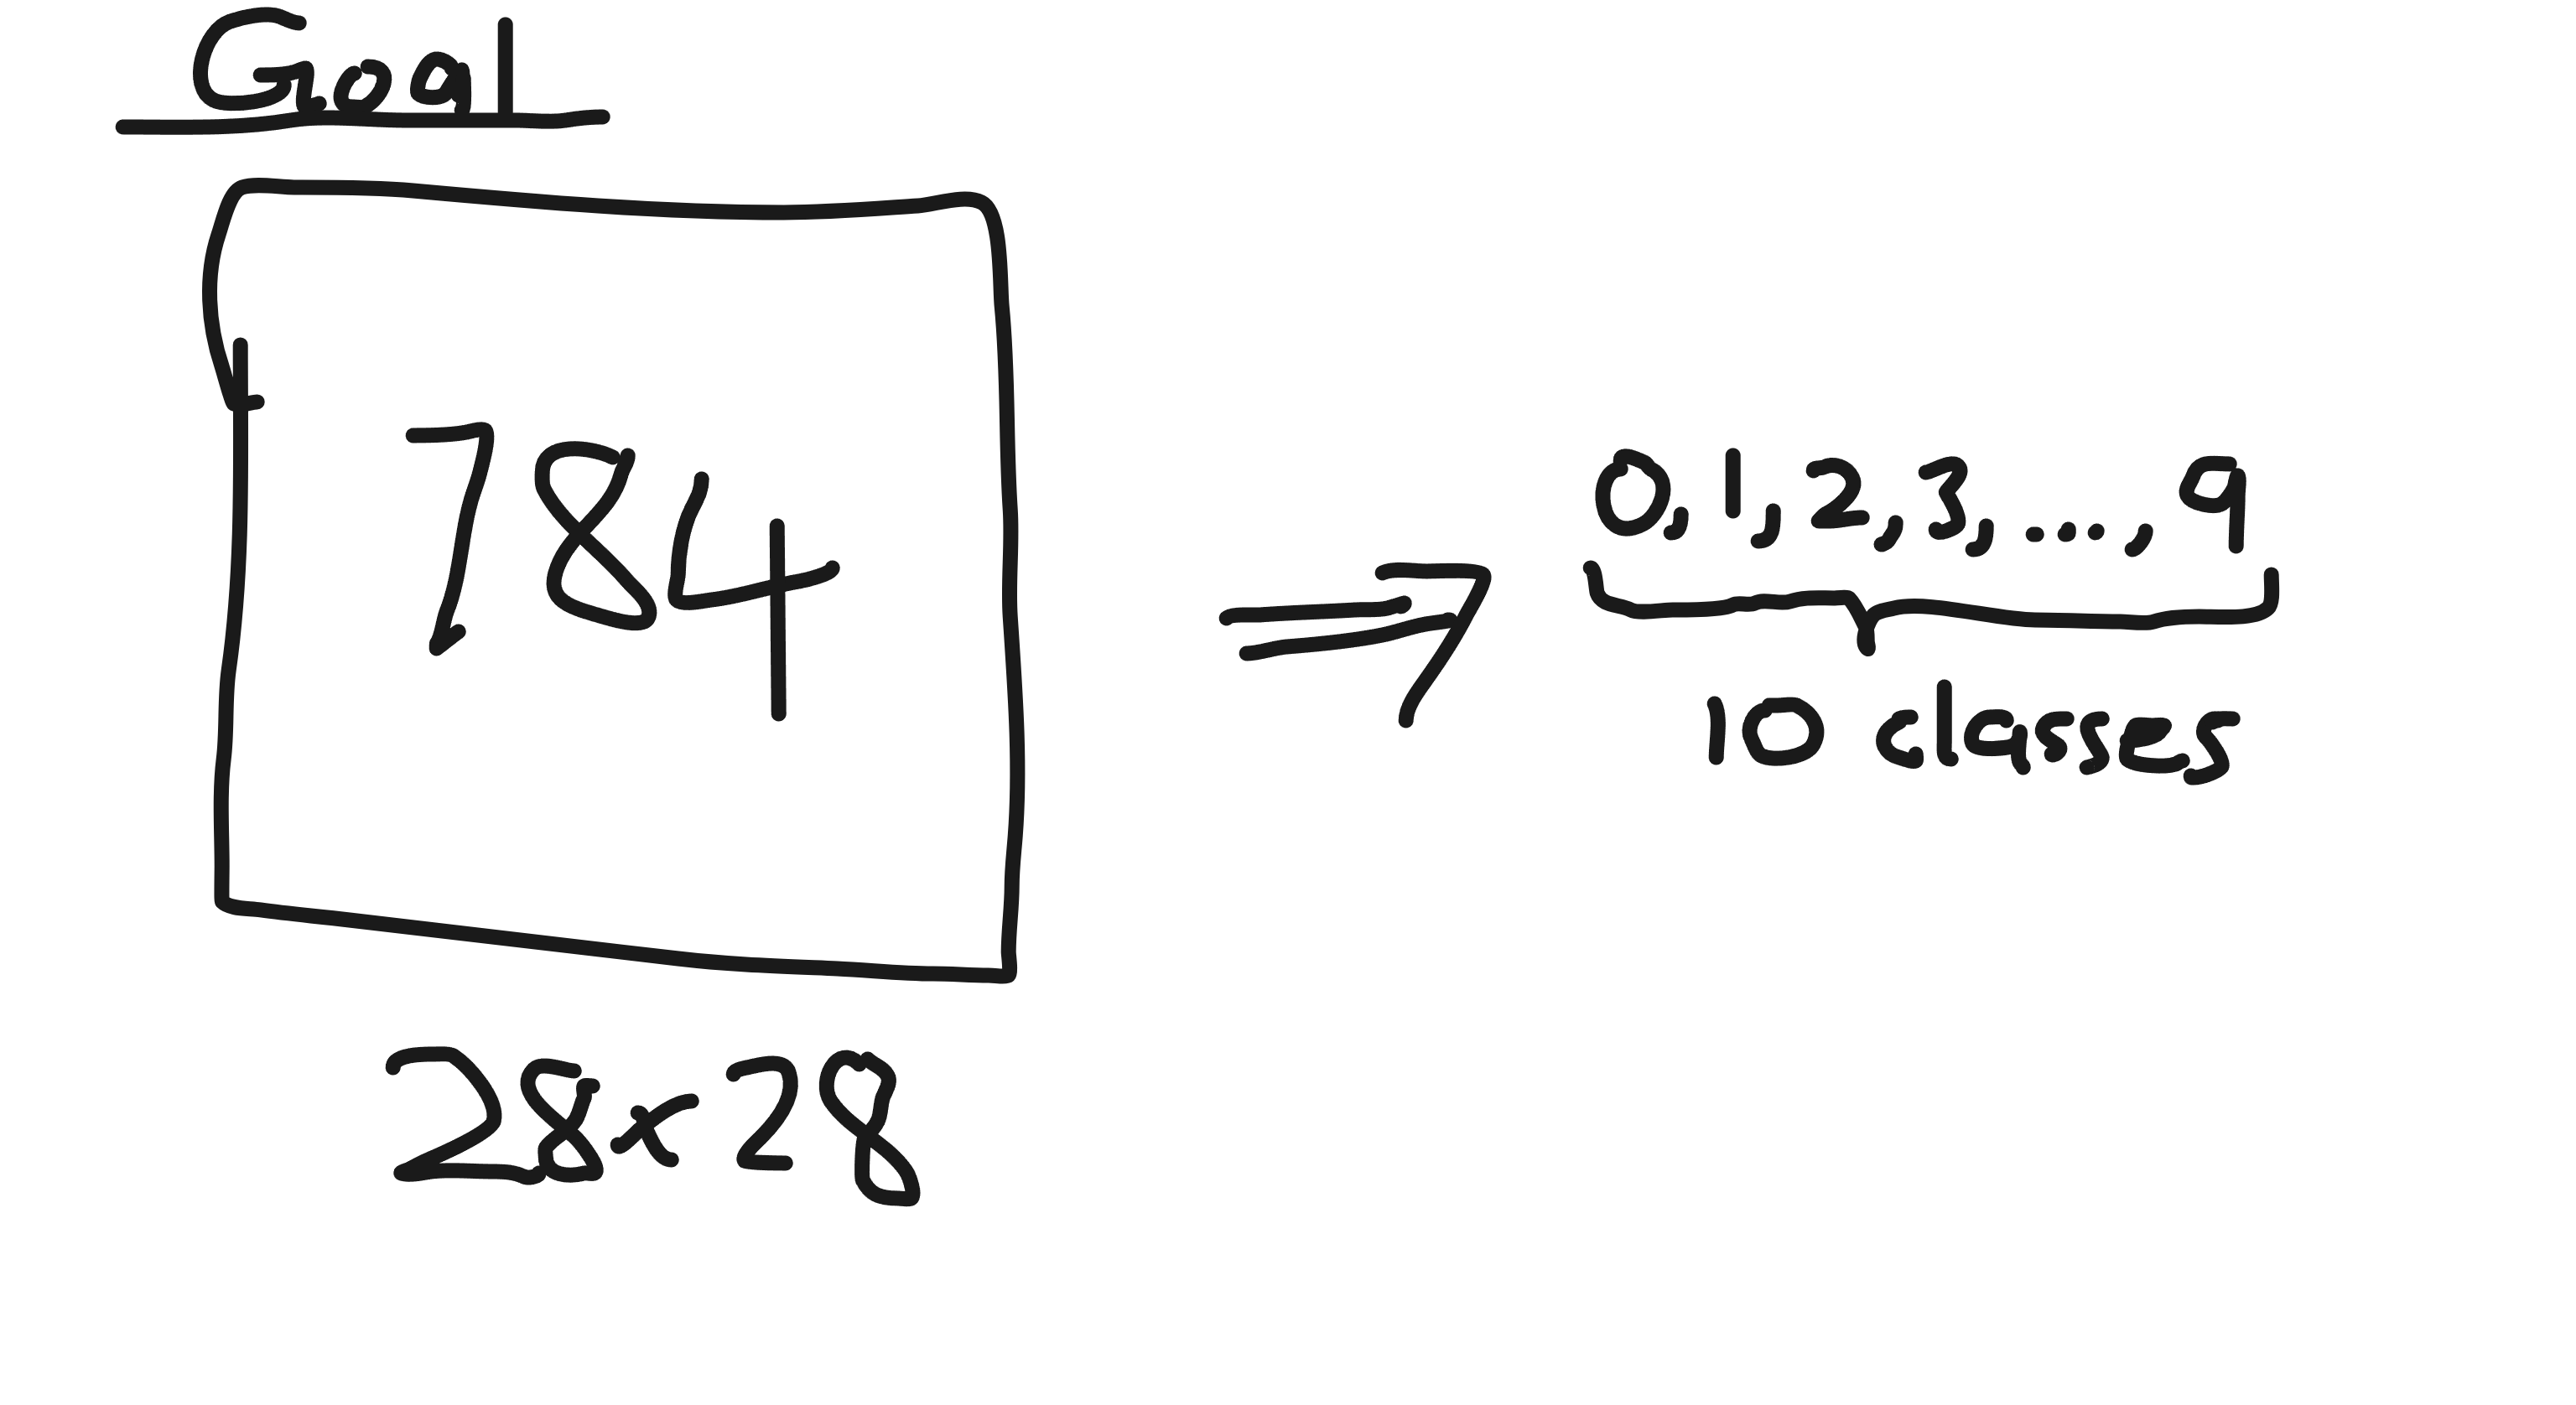 Goal
784
28x28
0, 1, 2, 3, ..., 9
10 classes